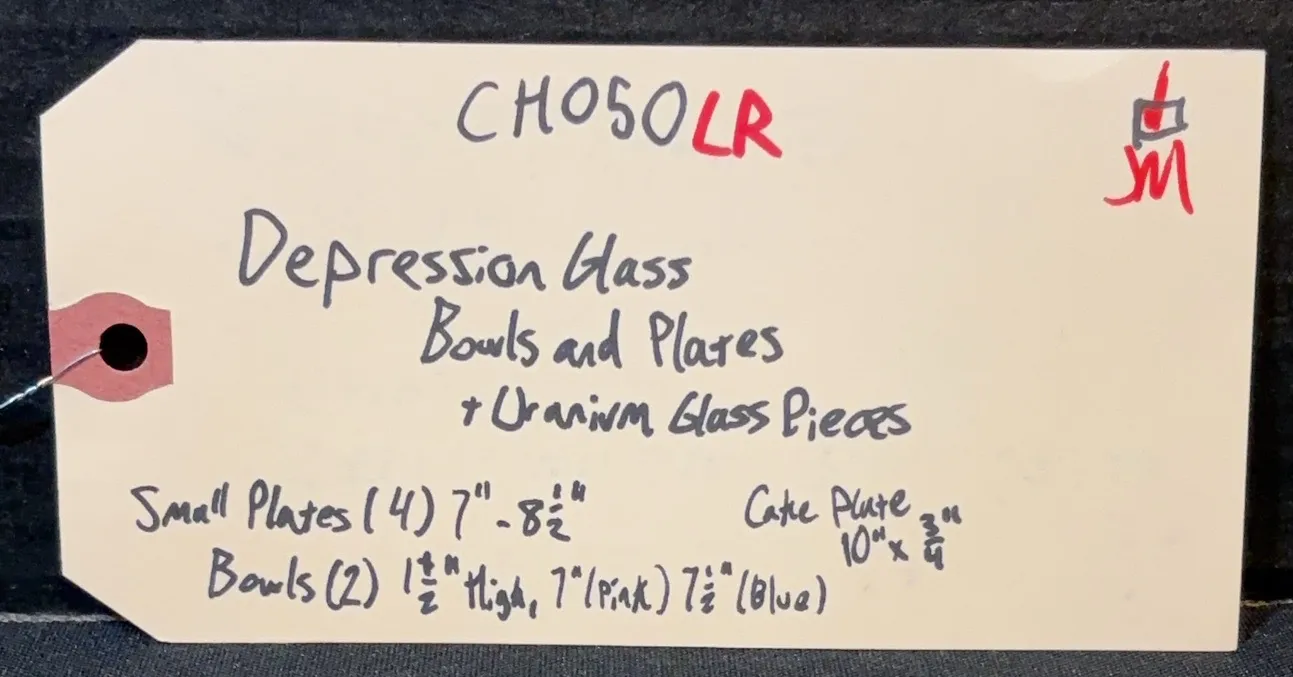 CH050LR
JM
Depression Glass
Bowls and Plates
+ Uranium Glass Pieces
Small Plates (4) 7" - 8 1/2"
Cake Plate
10" x 3/4"
Bowls (2) 1 1/2" High, 7" (Pink) 7 1/2" (Blue)